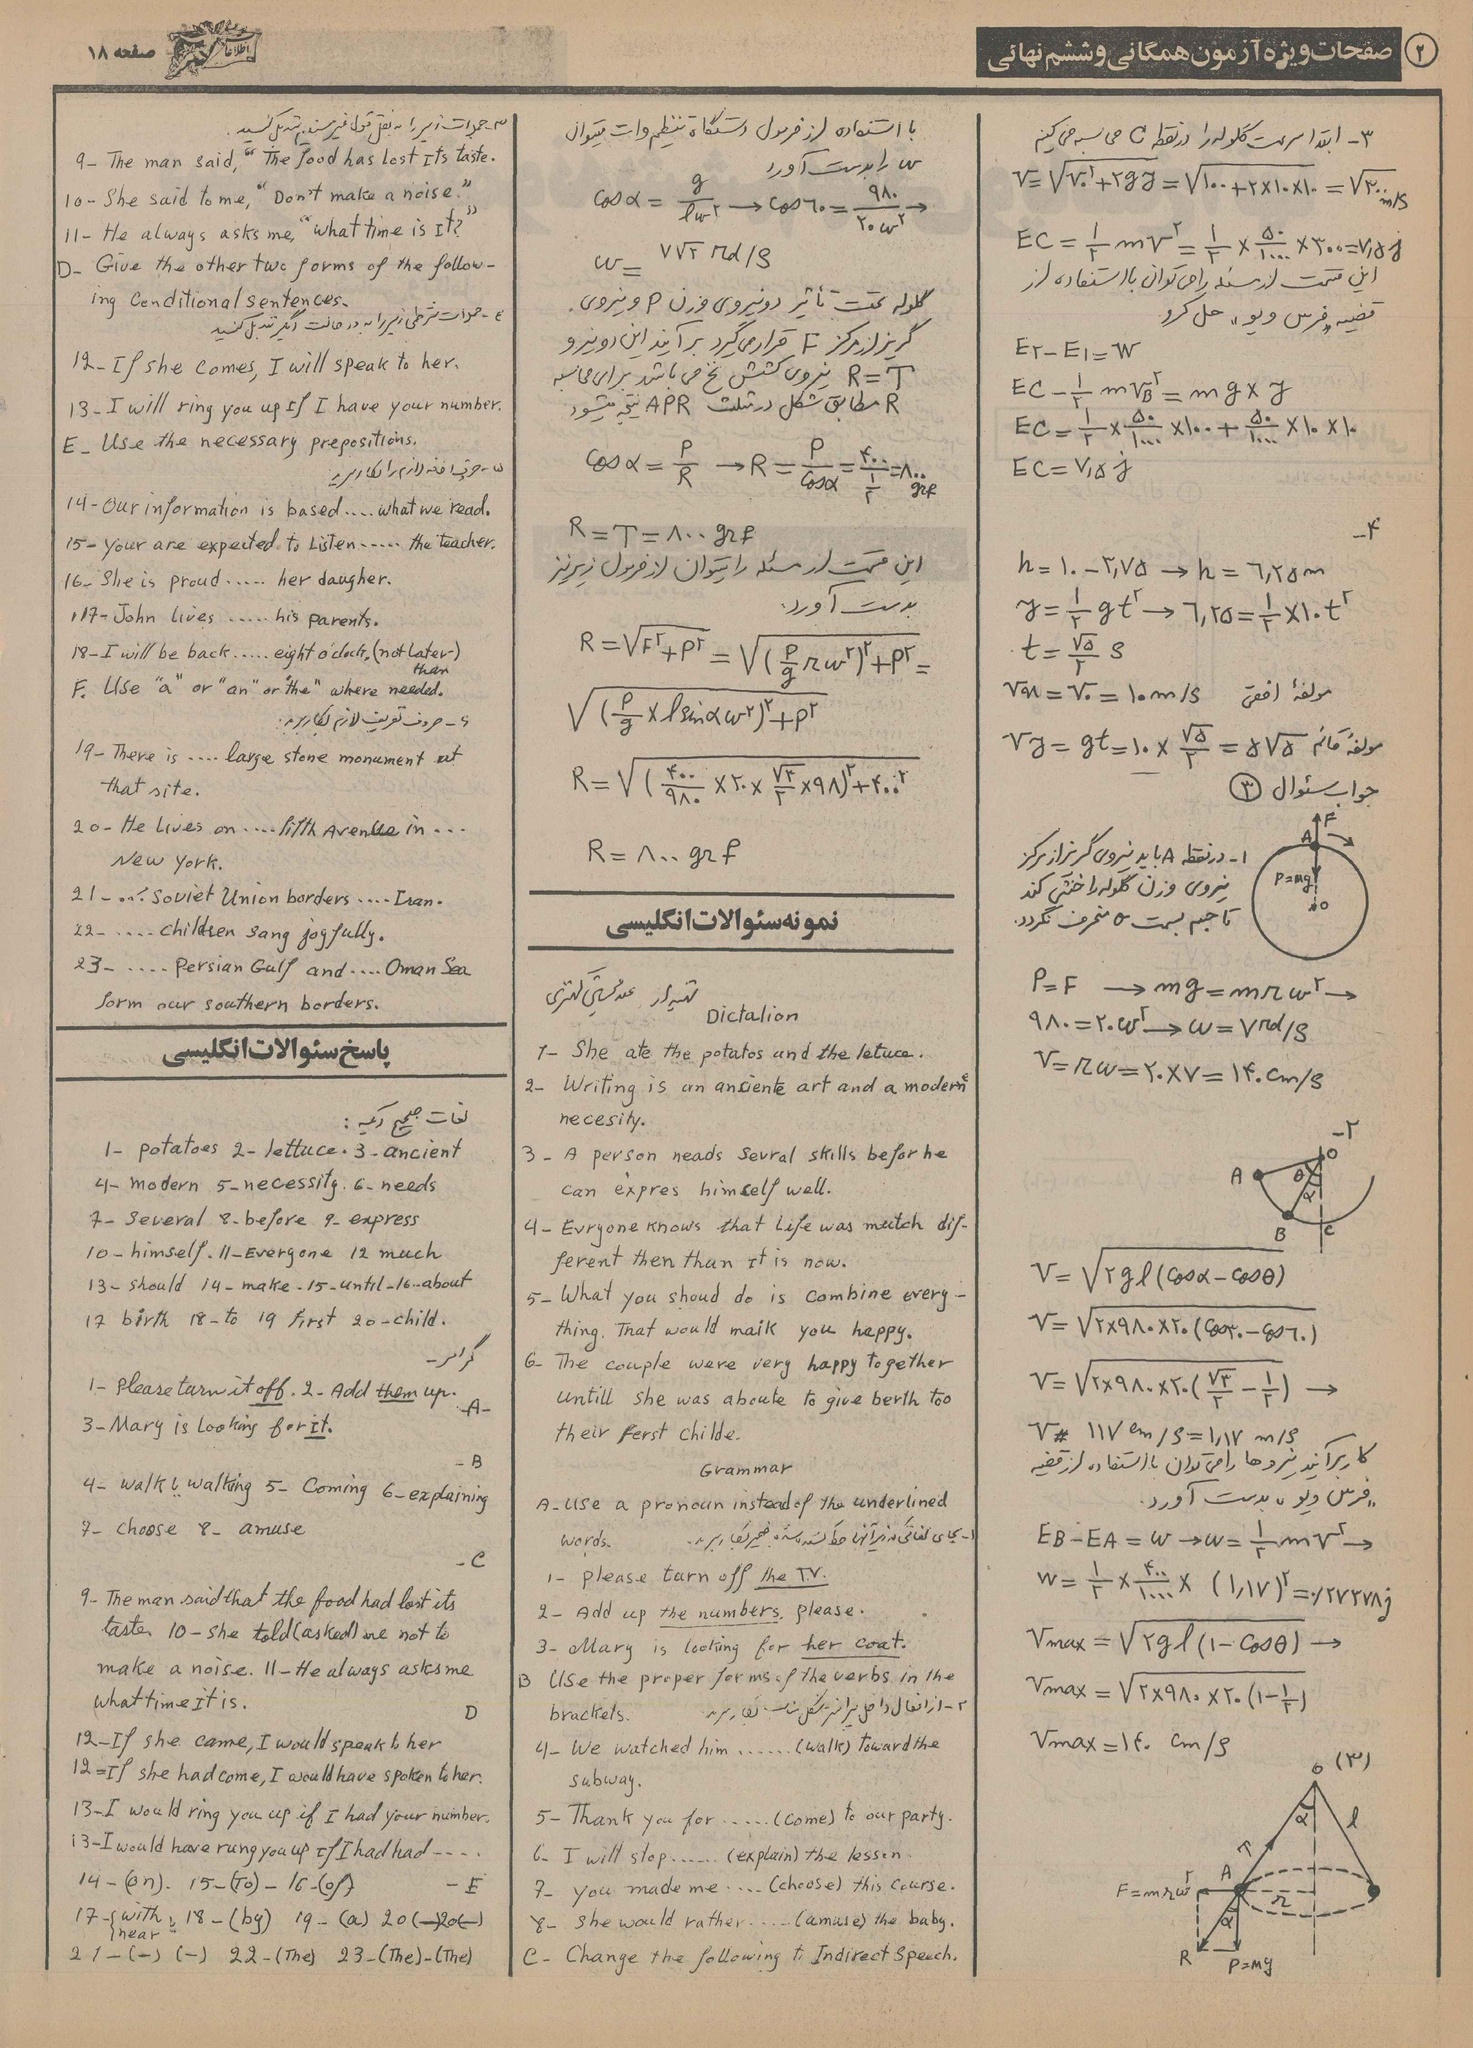 ۲ صفحات ویژه آزمون همگانی و ششم نهائی
اطلاعات
صفحه ۱۸
۳- ابتدا سرعت گلوله را در نقطه C محاسبه می کنیم
V=√V۰²+۲gy=√۱۰۰+۲×۱۰×۱۰=√۳۰۰ m/s
EC=½mV²=½×۵۰/۱۰۰۰×۳۰۰=۷٫۵j
این قسمت از مسئله را می توان با استفاده از
قضیه «فرس ویو» حل کرد
E۲-E۱=W
EC-½mVB²=mg×y
EC=½×۵۰/۱۰۰۰×۱۰۰+۵۰/۱۰۰۰×۱۰×۱۰
EC=۷٫۵j
۴-
h=۱۰-۳٫۷۵→h=۶٫۲۵m
y=½gt²→۶٫۲۵=½×۱۰t²
t=√۵/۲ s
Vx=V۰=۱۰m/s مولفهٔ افقی
Vy=gt=۱۰×√۵/۲=۵√۵ مولفهٔ قائم
جواب سئوال ۳
F
A
P=mg
O
۱- در نقطه A باید نیروی گریز از مرکز
نیروی وزن گلوله را خنثی کند
تا جسم بسمت O منحرف نگردد.
P=F→mg=mrw²→
۹۸۰=۲۰w²→w=۷rd/s
V=rw=۲۰×۷=۱۴۰cm/s
۲-
O
A
θ
α
B
C
V=√۲gl(cosα-cosθ)
V=√۲×۹۸۰×۲۰(cos۳۰-cos۶۰)
V=√۲×۹۸۰×۲۰(√۳/۲-½)→
V# ۱۱۷cm/s=۱٫۱۷ m/s
کار برآیند نیروها را می توان با استفاده از قضیه
«فرس ویو» بدست آورد.
EB-EA=W→W=½mV²→
W=½×۴۰۰/۱۰۰۰×(۱٫۱۷)²=۰٫۲۷۳۷۸j
Vmax=√۲gl(1-cosθ)→
Vmax=√۲×۹۸۰×۲۰(۱-½)
Vmax=۱۴۰ cm/s
(۳)
O
α
l
T
A
r
F=mrw²
α
R
P=mg
با استفاده از فرمول دستگاه تنظیم وات میتوان
w را بدست آورد
cosα=g/lw²→cos۶۰=۹۸۰/۲۰w²→
w=۷√۲ rd/s
گلوله تحت تأثیر دو نیروی وزن P و نیروی
گریز از مرکز F قرار می گیرد برآیند این دو نیرو
R=T نیروی کشش نخ می باشد برای محاسبه
R مطابق شکل در مثلث APR نتیجه میشود
cosα=P/R→R=P/cosα=۴۰۰/½=۸۰۰ grf
R=T=۸۰۰ grf
این قسمت از مسئله را میتوان از فرمول زیر نیز
بدست آورد:
R=√F²+P²=√(P/g rw²)²+P²=
√(P/g×l sinαw²)²+P²
R=√(۴۰۰/۹۸۰×۲۰×√۳/۲×۹۸)²+۴۰۰²
R=۸۰۰ grf
نمونه سئوالات انگلیسی
Dictation
1- She ate the potatos and the letuce.
2- Writing is an anciente art and a moderne
necesity.
3- A person neads sevral skills befor he
can expres himself well.
4- Evryone knows that life was mutch dif-
ferent then than it is now.
5- What you shoud do is combine every-
thing. That would maik you happy.
6- The couple were very happy together
untill she was aboute to give berth too
their ferst childe.
Grammar
A- Use a pronoun instead of the underlined
words.
1- Please turn off the TV.
2- Add up the numbers, please.
3- Mary is looking for her coat.
B Use the proper forms of the verbs in the
brackets.
4- We watched him ...... (walk) toward the
subway.
5- Thank you for ..... (come) to our party.
6- I will stop ...... (explain) the lesson.
7- you made me .... (choose) this course.
8- She would rather ..... (amuse) the baby.
C- Change the following to Indirect Speech.
۳- جملات زیر را به نقل قول غیر مستقیم تبدیل کنید.
9- The man said, "The food has lost its taste.
10- She said to me, "Don't make a noise."
11- He always asks me, "what time is it?"
D- Give the other two forms of the follow-
ing conditional sentences.
۴- جملات شرطی زیر را به دو حالت دیگر تبدیل کنید
12- If she comes, I will speak to her.
13- I will ring you up if I have your number.
E- Use the necessary prepositions.
14- Our information is based .... what we read.
15- your are expected to listen ..... the teacher.
16- She is proud ..... her daugher.
17- John lives ..... his parents.
18- I will be back ..... eight o'clock, (not later
than)
F. Use "a" or "an" or "the" where needed.
۶- حروف تعریف لازم بکار برید:
19- There is .... large stone monument at
that site.
20- He lives on .... fifth Avenue in ...
New York.
21- .... Soviet Union borders .... Iran.
22- .... children sang joyfully.
23- .... Persian Gulf and .... Oman Sea
form our southern borders.
پاسخ سئوالات انگلیسی
لغات صحیح دیکته:
1- potatoes 2- lettuce. 3- ancient
4- modern 5- necessity. 6- needs
7- Several 8- before 9- express
10- himself. 11- Everyone 12 much
13- should 14- make -15- until -16- about
17 birth 18- to 19 first 20- child.
گرامر-
1- Please turn it off. 2- Add them up. A-
3- Mary is looking for it.
B-
4- walk یا walking 5- Coming 6- explaining
7- choose 8- amuse
C-
9- The man said that the food had lost its
taste. 10- she told (asked) me not to
make a noise. 11- He always asks me
what time it is.
D
12- If she came, I would speak to her
12= If she had come, I would have spoken to her.
13- I would ring you up if I had your number.
13- I would have rung you up if I had had ----.
14- (on). 15- (to) - 16- (of) E-
17- {with, near 18- (by) 19- (a) 20 (-) 20(-)
21- (-) (-) 22- (The) 23- (The)-(The)